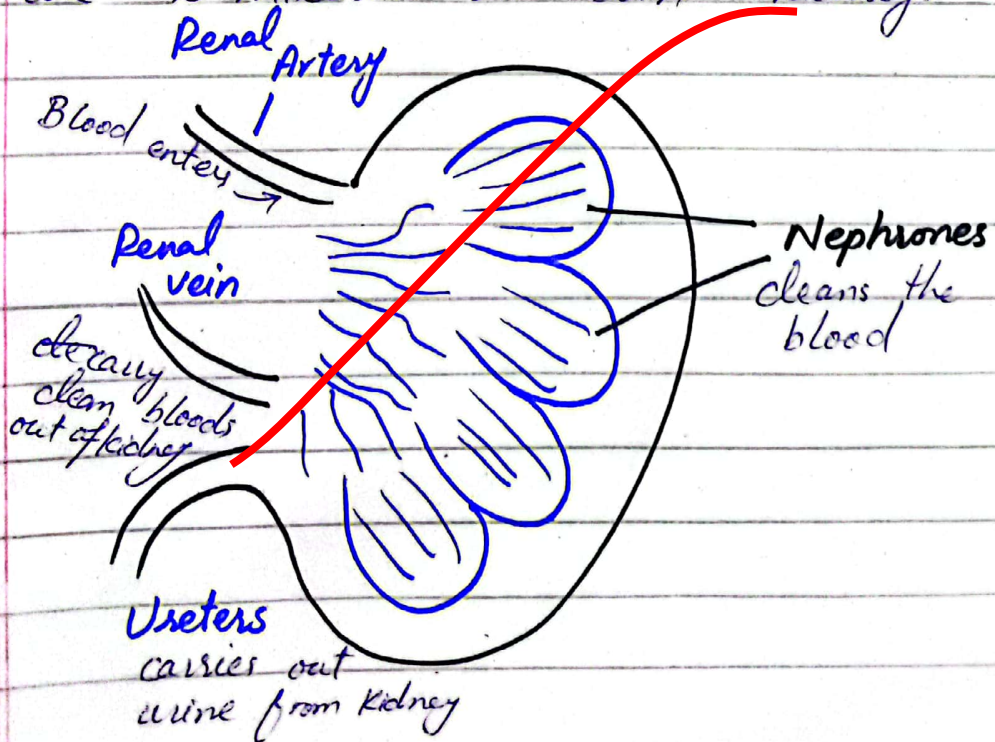 Renal
Artery
Blood enters
Renal
vein
clean bloods
out of kidney
Nephrones
cleans the
blood
Ureters
carries out
urine from Kidney